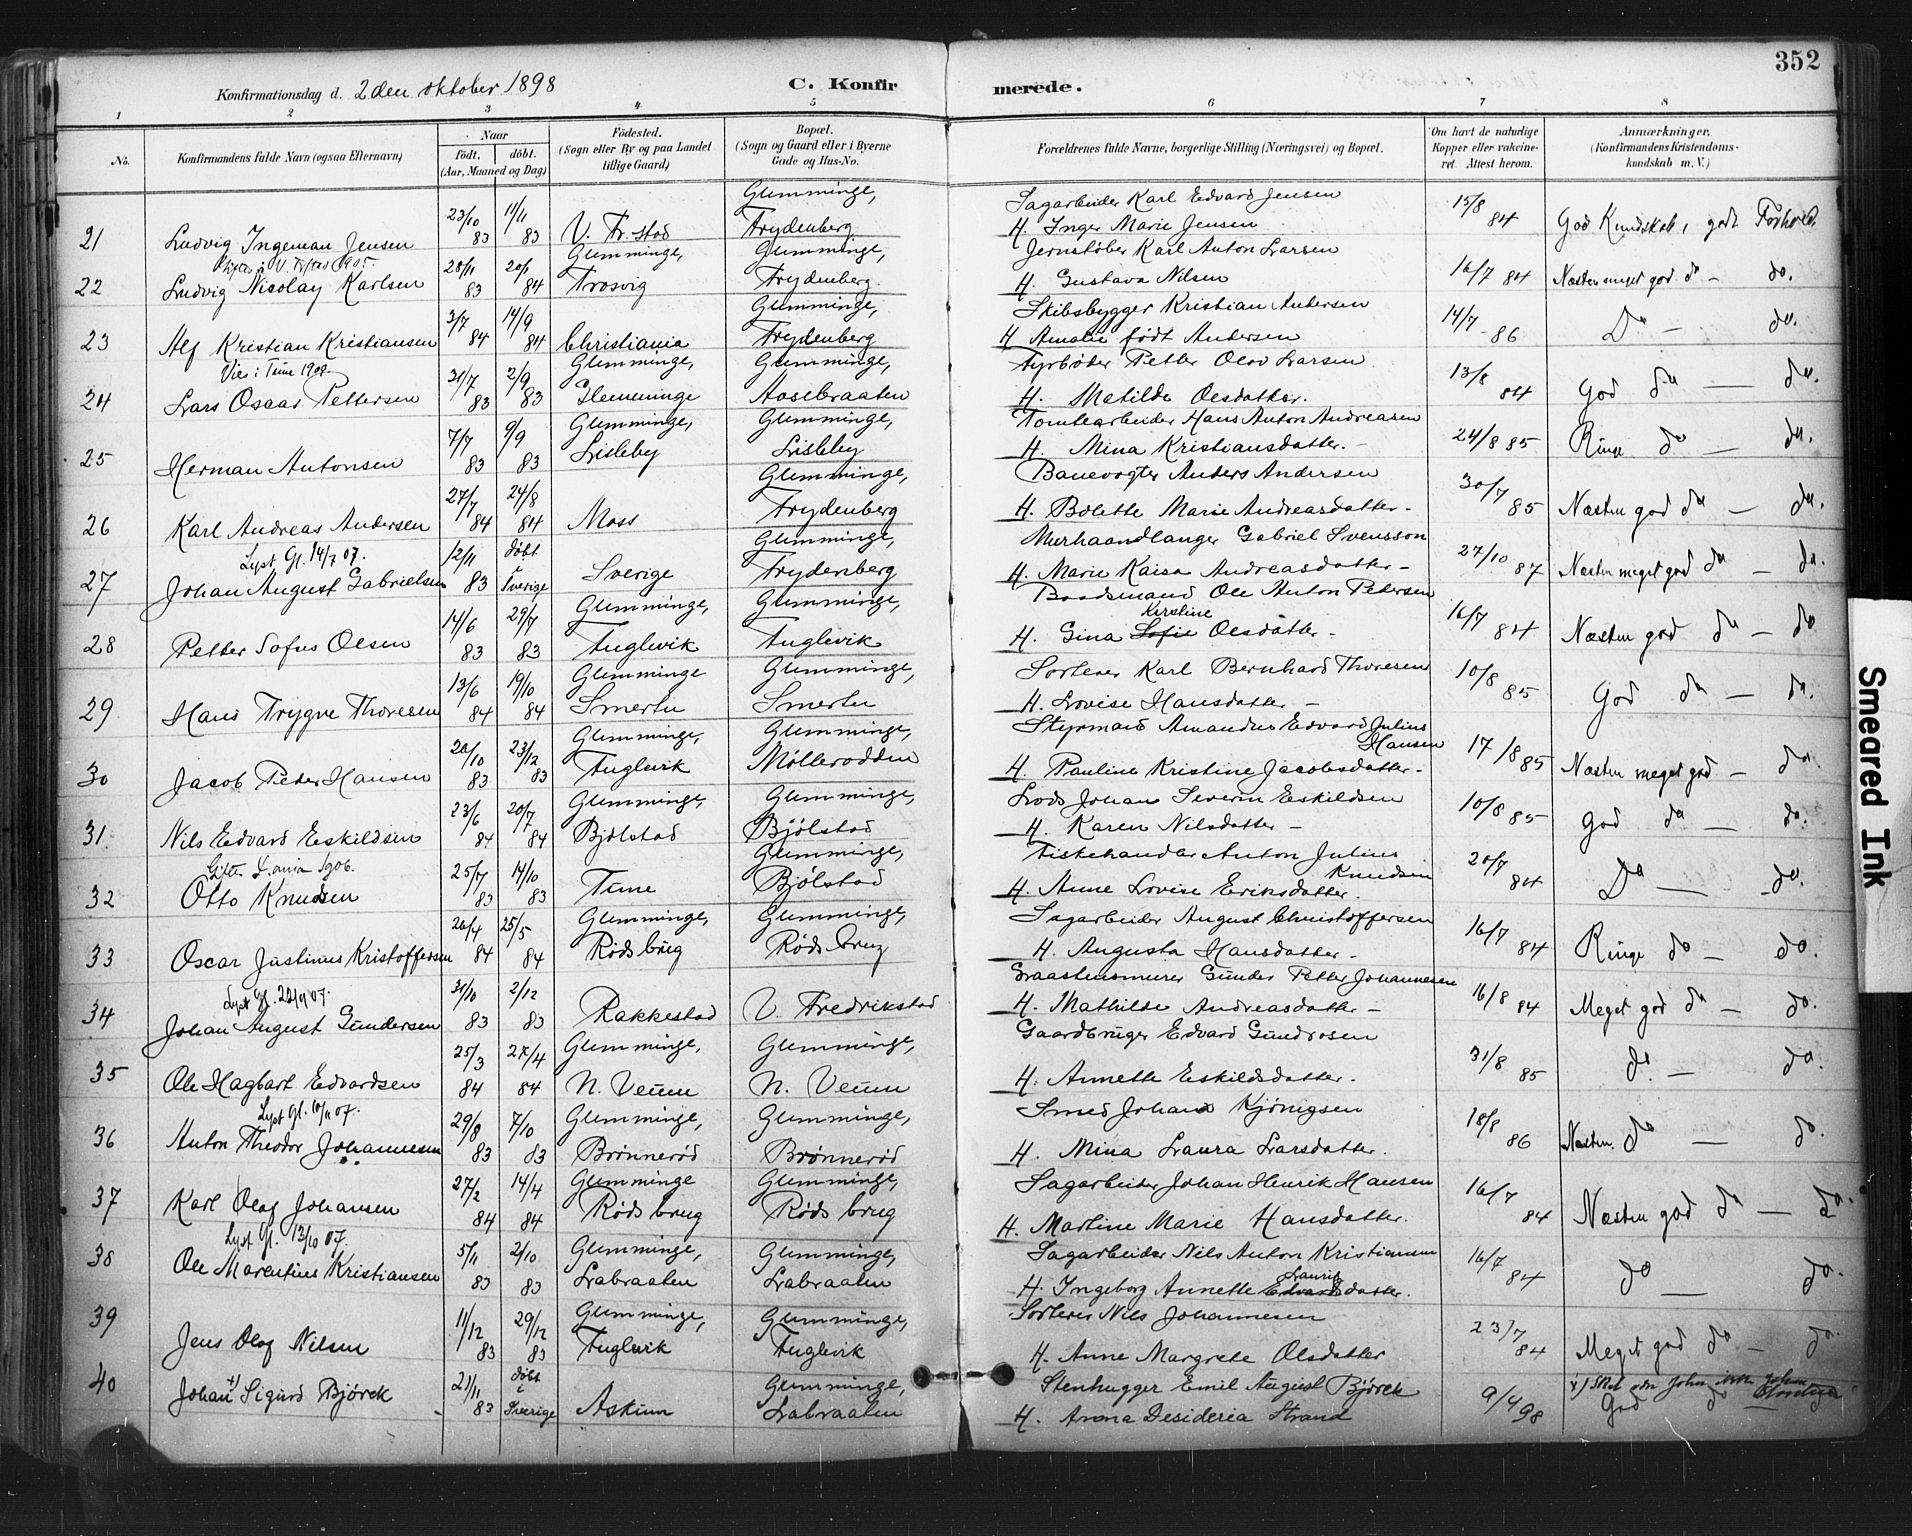 352
Konfirmationsdag d. 2den oktober 1898
C. Konfirmerede.
1 2 3 4 5 6 7 8
No.
Konfirmandens fulde Navn (ogsaa Efternavn)
Naar
födt. döbt.
(Aar, Maaned og Dag)
Födested.
(Sogn eller By og paa Landet
tillige Gaard)
Bopæl.
(Sogn og Gaard eller i Byerne
Gade og Hus-No.
Forældrenes fulde Navne, borgerlige Stilling (Næringsvei) og Bopæl.
Om havt de naturlige
Kopper eller vakcine-
ret. Attest herom.
Anmærkninger.
(Konfirmandens Kristendoms-
kundskab m. V.)
Glemminge, Sagarbeider Karl Edvard Jensen
21 Ludvig Ingeman Jensen 23/10 83 11/11 83 V. Fr.stad Trydenberg H. Inger Marie Jensen 15/8 84 God Kundskab, godt Forhold
Glemminge, Glemminge, Jernstøber Karl Anton Larsen
22 Ludvig Nicolay Karlsen 28/11 83 20/1 84 Trosvig Trydenberg H. Gustava Nilsen 16/7 84 Næsten meget god do — do.
Glemminge, Skibsbygger Kristian Andersen
23 Alf Kristian Kristiansen 3/7 84 14/9 84 Christiania Trydenberg H Amalie født Andersen 14/7 86 Do — do.
Viet i Tune 1907 Glemminge, Glemminge, Fyrbøder Petter Olav Larsen
24 Lars Oscar Pettersen 31/7 83 2/9 83 Glemminge Aasebraaten H. Matilde Olsdatter. 13/8 84 God do — do.
Glemminge, Glemminge, Tomtearbeider Hans Anton Andreasen
25 Herman Antonsen 7/7 83 9/9 83 Lisleby Lisleby H. Mina Kristiansdatter. 24/8 85 Ringe do — do.
Glemminge, Banevogter Anders Andersen
26 Karl Andreas Andersen 27/7 84 24/8 84 Moss Trydenberg H. Bolette Marie Andreasdatter. 30/7 85 Næsten god do — do.
Lyst Gl. 14/7 07. døbt Glemminge, Murhaandlanger Gabriel Svensson
27 Johan August Gabrielsen 12/11 83 i Sverige Sverige Trydenberg H. Marie Kaisa Andreasdatter — 27/10 87 Næsten meget god do — do.
Glemminge, Glemminge, Baadsmand Ole Anton Petersen
Kirstine
28 Petter Sofus Olsen 14/6 83 29/7 83 Fuglevik Fuglevik H. Gina Sofie Olsdatter — 16/7 84 Næsten god do — do
Glemminge Glemminge, Sorterer Karl Bernhard Thoresen
29 Hans Trygve Thoresen 13/6 84 19/10 84 Smertu Smertu H. Lovise Hansdatter — 10/8 85 God do — do.
Glemminge, Glemminge, Styrmand Amandus Edvard Julius
Hansen
30 Jacob Peder Hansen 20/10 83 23/12 83 Fuglevik Møllerodden H. Pauline Kristine Jacobsdatter — 17/8 85 Næsten meget god — do.
Glemminge, Glemminge, Lods Johan Severin Eskildsen
31. Nils Edvard Eskildsen 23/6 84 20/7 84 Bjølstad Bjølstad H. Karen Nilsdatter — 10/8 85 God do — do.
1906. Glemminge, Fiskehandler Anton Julius
Knudsen
32 Otto Knudsen 25/7 83 14/10 83 Tune Bjølstad H. Anne Lovise Eriksdatter. 20/7 84 Do — do.
Glemminge, Glemminge, Sagarbeider August Christoffersen
33 Oscar Justinus Kristoffersen 20/4 84 25/5 84 Røds brug Røds brug H. Augusta Hansdatter — 16/7 84 Ringe do — do.
Lyst Gl. 22/9 07. Graastensmurer Gunder Petter Johannesen
34 Johan August Gundersen 31/10 83 2/12 83 Rakkestad V. Fredrikstad H. Mathilde Andreasdatter — 16/8 84 Meget god do — do.
Glemminge, Glemminge, Gaardbruger Edvard Gundrosen
35 Ole Hagbart Edvardsen 25/3 84 27/4 84 N. Veum N. Veum H. Annette Eskildsdatter. 31/8 85 do. — do.
Lyst Gl. 10/11 07. Glemminge, Glemminge, Smed Johan Kjønigsen
36 Anton Theodor Johannesen 29/8 83 7/10 83 Brønnerød Brønnerød H. Mina Laura Larsdatter. 18/8 86 Næsten do — do.
Glemminge Glemminge, Sagarbeider Johan Henrik Hansen
37 Karl Olaf Johansen 27/2 84 14/4 84 Røds brug Røds brug H. Martine Marie Hansdatter. 16/7 84 Næsten god do — do.
Lyst Gl. 13/10 07. Glemminge, Glemminge, Sagarbeider Nils Anton Kristiansen
38 Ole Marentius Kristiansen 5/11 83 2/10 83 Labraaten Labraaten H. Ingeborg Annette Edvardsdatter. 16/7 84 do — do.
Glemminge, Glemminge, Sorterer Nils Johannesen
39 Jens Olaf Nilsen 11/12 83 29/12 83 Fuglevik Fuglevik H. Anne Margrete Olsdatter 23/7 84 Meget god do — do
døbt Glemminge, Stenhugger Emil August Bjørck x) Skal John ikke Johan
40 Johan x) Sigurd Bjørck 21/11 83 i Sverige Askum Labraaten H. Anna Desideria Strand 9/4 98 God do — do
Smeared Ink